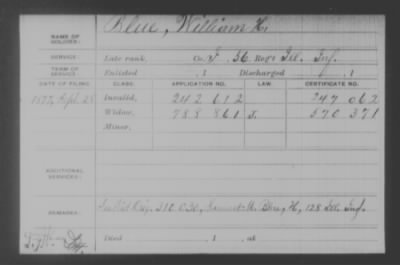 NAME OF SOLDIER: Blue, William H.
SERVICE: Late rank, Co. F, 56 Reg't Ill. Inf.
TERM OF SERVICE: Enlisted , 1 Discharged , 1
DATE OF FILING. CLASS. APPLICATION NO. LAW. CERTIFICATE NO.
1877, Sept. 28 Invalid, 242 612 247 062
Widow, 788 861 J. 570 371
Minor,
ADDITIONAL SERVICES:
REMARKS: 310.030, H, 128 Ill. Inf.
Died , 1 , at